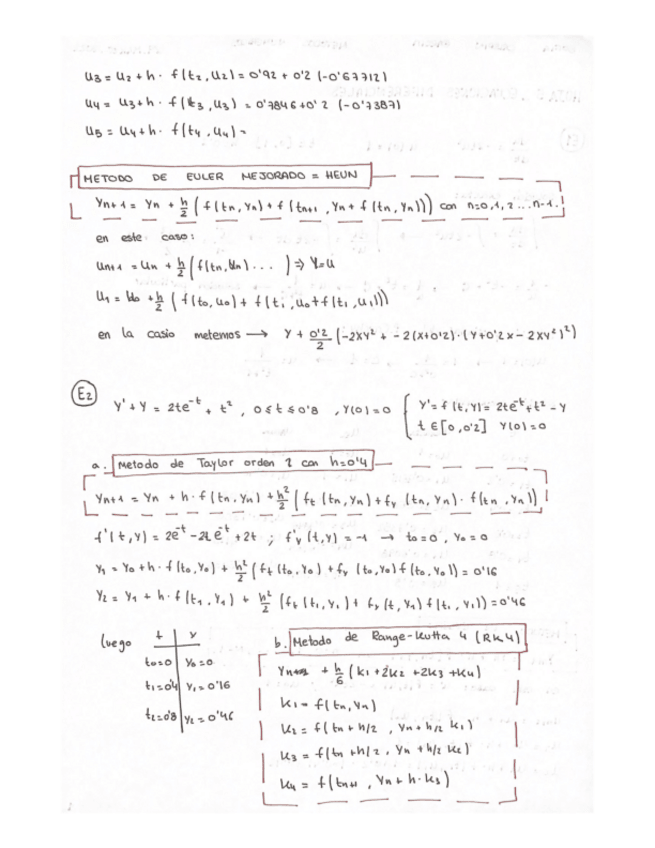 u3 = u2 + h · f(t2, u2) = 0'92 + 0'2 (-0'67712)
u4 = u3 + h · f(t3, u3) = 0'7846 + 0'2 (-0'7387)
u5 = u4 + h · f(t4, u4) =
METODO DE EULER MEJORADO = HEUN
yn+1 = yn + h/2 ( f(tn, yn) + f(tn+1, yn + f(tn, yn))) con n=0,1,2 ... n-1.
en este caso:
un+1 = un + h/2 ( f(tn, un) ... ) => y=u
u1 = u0 + h/2 ( f(t0, u0) + f(t1, u0 + f(t1, u1)))
en la casio metemos → y + 0'2/2 (-2xy² + -2(x+0'2)·(y+0'2x-2xy²)²)
E2
y' + y = 2te^-t + t², 0≤t≤0'8, y(0)=0 { y' = f(t,y) = 2te^-t + t² - y
t∈[0,0'2] y(0)=0
a. Metodo de Taylor orden 2 con h=0'4
yn+1 = yn + h · f(tn, yn) + h²/2 ( ft(tn, yn) + fy (tn, yn) · f(tn, yn))
f'(t,y) = 2e^-t - 2te^-t + 2t ; f'y(t,y) = -1 → t0=0, y0=0
y1 = y0 + h · f(t0, y0) + h²/2 (ft(t0, y0) + fy (t0, y0) f(t0, y0)) = 0'16
y2 = y1 + h · f(t1, y1) + h²/2 (ft(t1, y1) + fy(t, y1) f(t1, y1)) = 0'46
luego t y
t0=0 y0=0
t1=0'4 y1=0'16
t2=0'8 y2=0'46
b. Metodo de Range-Kutta 4 (RK4)
+ h/6 (k1 + 2k2 + 2k3 + k4)
k1 = f(tn, yn)
k2 = f(tn + h/2, yn + h/2 k1)
k3 = f(tn + h/2, yn + h/2 k2)
k4 = f(tn+1, yn + h · k3)